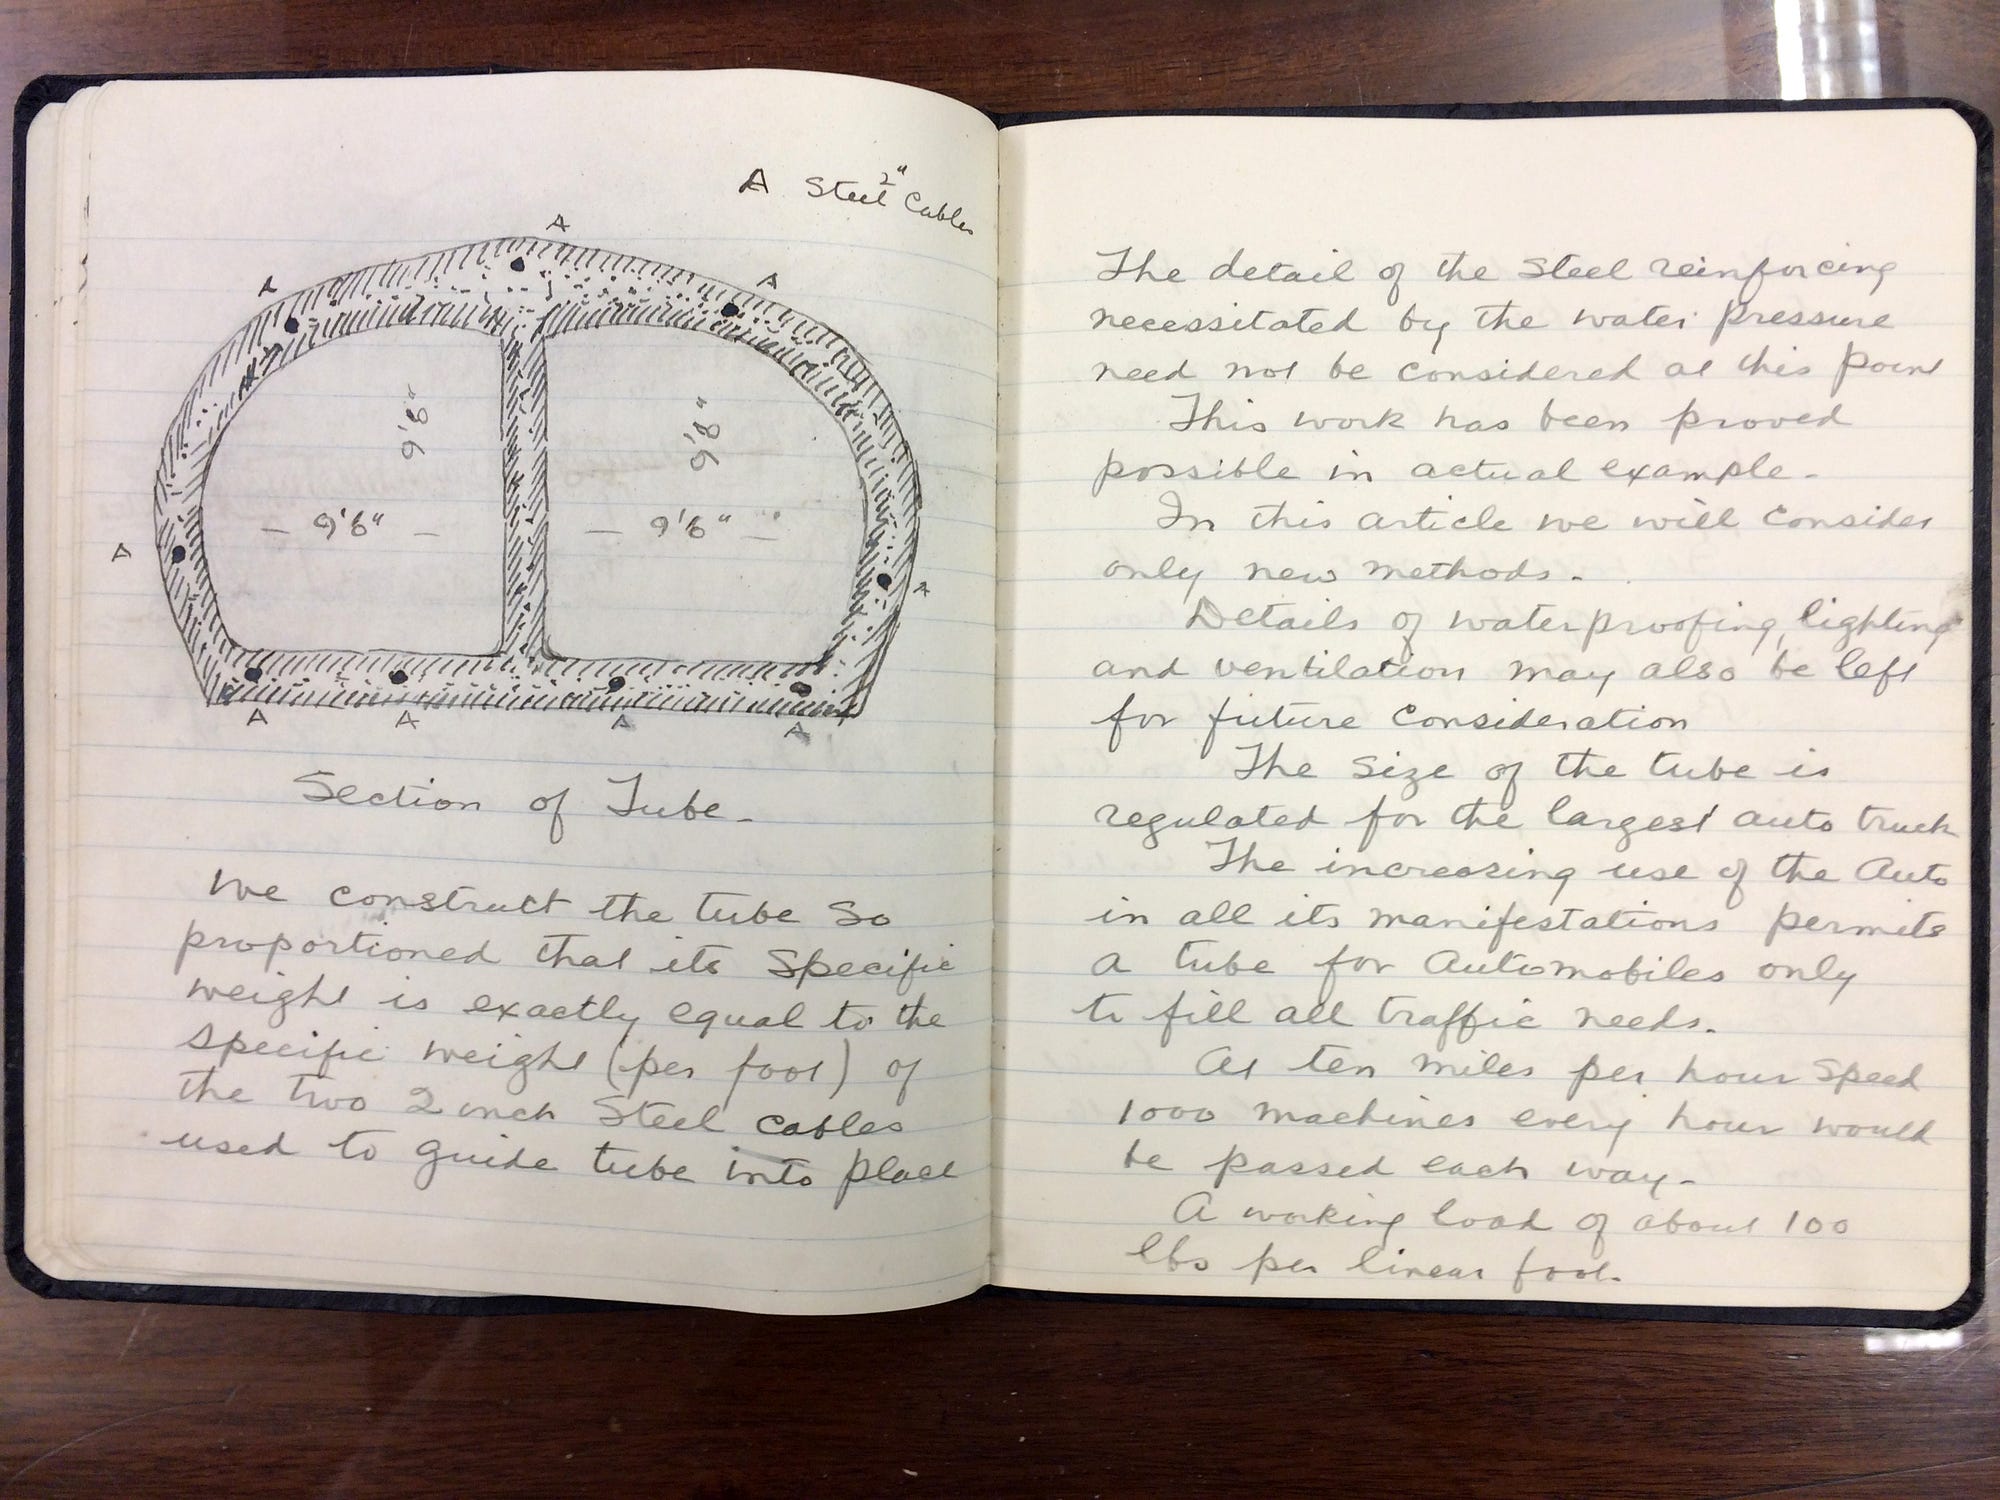 A Steel 2" Cables
A
A
A
9'8"
9'8"
— 9'6" —
— 9'6" —
A
A
A
A
A
A
Section of Tube -
We construct the tube so
proportioned that its specific
weight is exactly equal to the
specific weight (per foot) of
the two 2 inch Steel cables
used to guide tube into place
The detail of the Steel reinforcing
necessitated by the water pressure
need not be considered at this point
This work has been proved
possible in actual example -
In this article we will consider
only new methods -
Details of waterproofing, lighting
and ventilation may also be left
for future consideration
The size of the tube is
regulated for the largest auto truck
The increasing use of the Auto
in all its manifestations permits
a tube for Automobiles only
to fill all traffic needs.
At ten miles per hour speed
1000 machines every hour would
be passed each way -
A working load of about 100
lbs per linear foot.